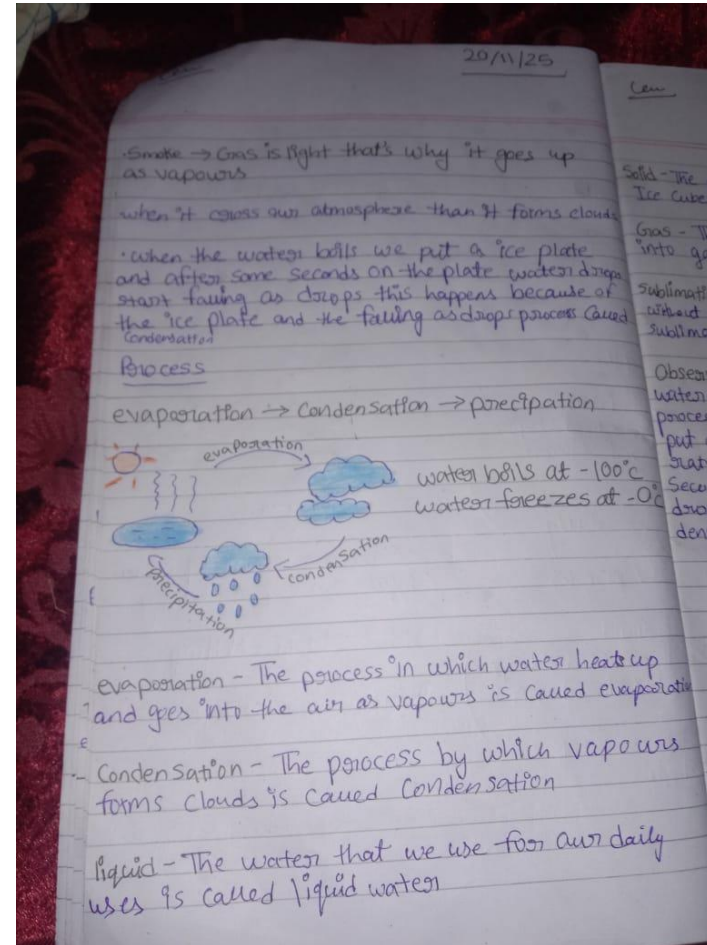 20/11/25
• Smoke → Gas is light that's why it goes up
as vapours
when it cross our atmosphere than it forms clouds
• when the water boils we put a ice plate
and after some seconds on the plate water drops
start falling as drops this happens because of
the ice plate and the falling as drops process called
Condensation
Process
evaporation → Condensation → precipation
evaporation
water boils at -100°c
water freezes at -0°c
condensation
precipitation
evaporation - The process in which water heats up
and goes into the air as vapours is called evaporatio
Condensation - The process by which vapours
forms clouds is called Condensation
liquid - The water that we use for our daily
uses is called liquid water
Solid - The
Ice Cube
Gas - T
into g
Sublimati
without
sublima
Obser
water
proce
put
Seco
dro
den